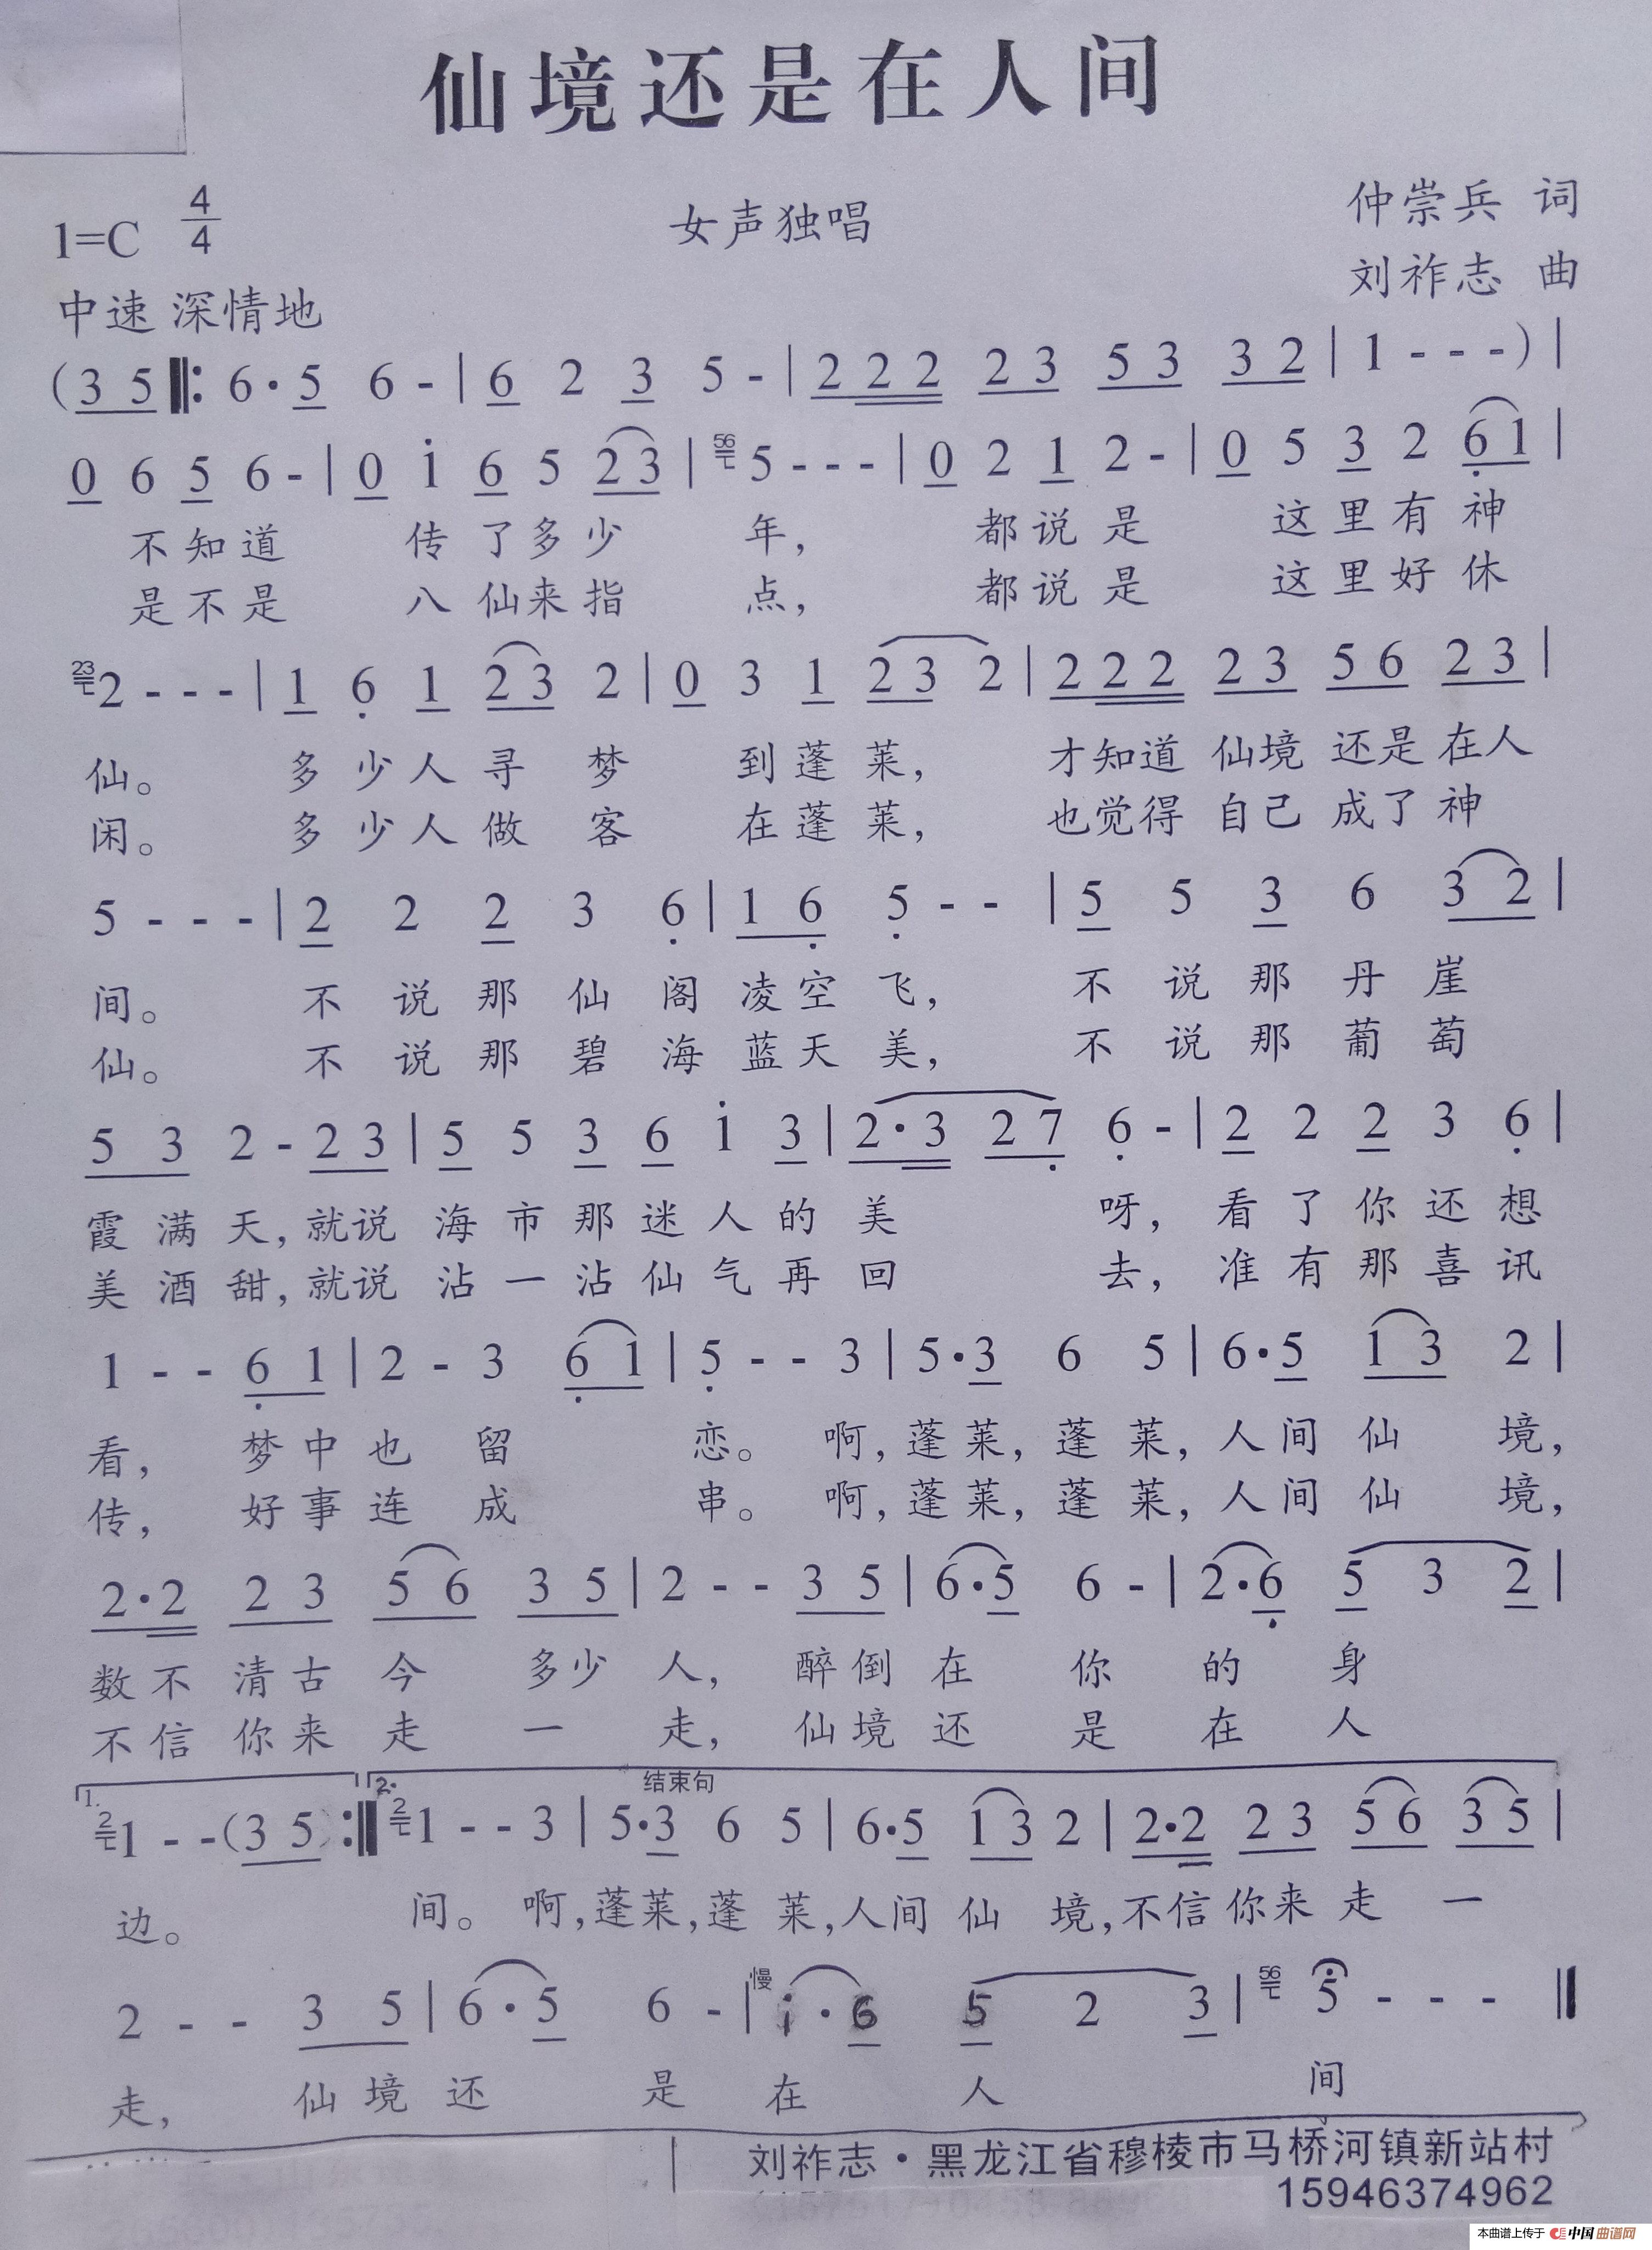 仙境还是在人间
1=C 4/4
女声独唱
仲崇兵 词
刘祚志 曲
中速 深情地
(3 5 ‖: 6·5 6 - | 6 2 3 5 - | 2 2 2 2 3 5 3 3 2 | 1 - - -) |
0 6 5 6 - | 0 i 6 5 2 3 | 56 5 - - - | 0 2 1 2 - | 0 5 3 2 6 1 |
不知道 传了多少 年, 都说是 这里有神
是不是 八仙来指 点, 都说是 这里好休
23 2 - - - | 1 6 1 2 3 2 | 0 3 1 2 3 2 | 2 2 2 2 3 5 6 2 3 |
仙。 多少人寻 梦 到蓬莱, 才知道 仙境 还是在人
闲。 多少人做 客 在蓬莱, 也觉得 自己 成了神
5 - - - | 2 2 2 3 6 | 1 6 5 - - | 5 5 3 6 3 2 |
间。 不说那仙阁凌空飞, 不说那丹崖
仙。 不说那碧海蓝天美, 不说那葡萄
5 3 2 - 2 3 | 5 5 3 6 i 3 | 2·3 2 7 6 - | 2 2 2 3 6 |
霞满天,就说海市那迷人的美 呀, 看了你还想
美酒甜,就说沾一沾仙气再回 去, 准有那喜讯
1 - - 6 1 | 2 - 3 6 1 | 5 - - 3 | 5·3 6 5 | 6·5 1 3 2 |
看, 梦中也留 恋。 啊,蓬莱,蓬莱,人间仙 境,
传, 好事连成 串。 啊,蓬莱,蓬莱,人间仙 境,
2·2 2 3 5 6 3 5 | 2 - - 3 5 | 6·5 6 - | 2·6 5 3 2 |
数不清古今 多少人, 醉倒在 你 的 身
不信你来走 一 走, 仙境还 是 在 人
1. 2. 结束句
2 1 - -(3 5) :‖ 2 1 - - 3 | 5·3 6 5 | 6·5 1 3 2 | 2·2 2 3 5 6 3 5 |
边。 间。 啊,蓬莱,蓬莱,人间仙 境,不信你来走 一
2 - - 3 5 | 6·5 6 - | 慢 i·6 5 2 3 | 56 5 - - - ‖
走, 仙境还 是 在 人 间
刘祚志·黑龙江省穆棱市马桥河镇新站村
15946374962
本曲谱上传于 中国曲谱网